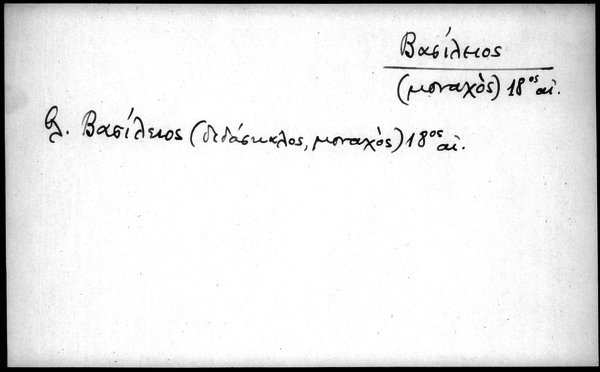 Βασίλειος
(μοναχὸς) 18ος αἰ.
βλ. Βασίλειος (διδάσκαλος, μοναχὸς) 18ος αἰ.